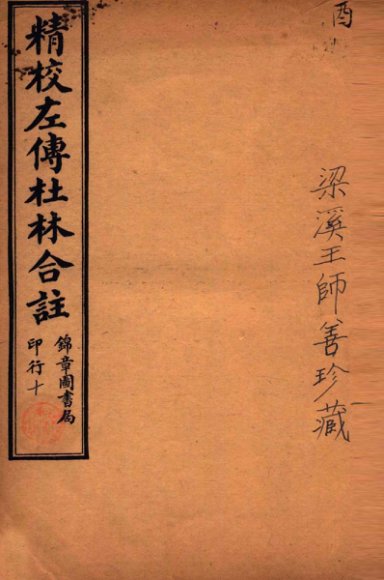 酉
梁溪王師善珍藏
精校左傳杜林合註
錦章圖書局
印行十